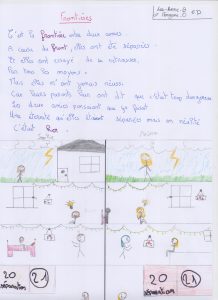 Frontières
C'est la frontière entre deux amies
A cause du front, elles ont été séparées
Et elles ont essayé de se retrouver,
Par tous les moyens.
Mais elles n'ont jamais réussi
Car leurs parents leur ont dit que c'était trop dangereux
Les deux amies pensaient que ça faisait
Une éternité qu'elles étaient séparées mais en réalité
C'était
20
séparation
21
20
séparation
21